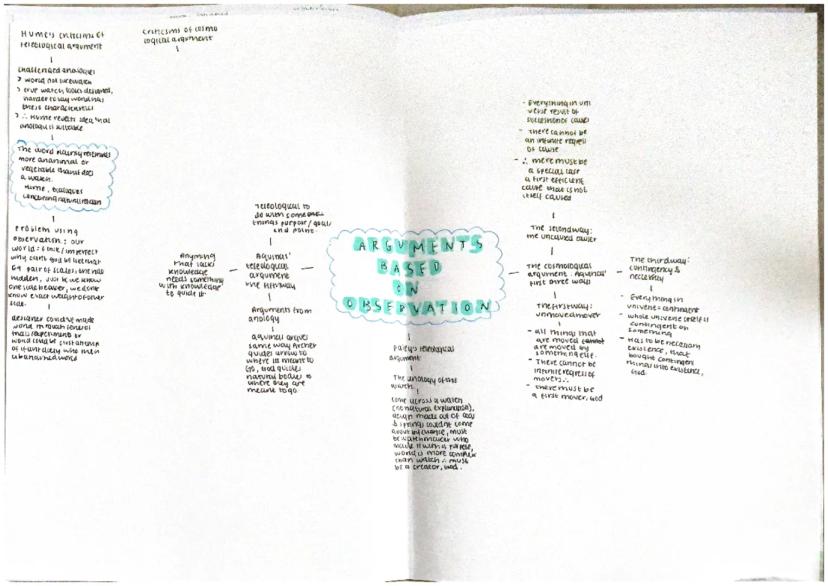 Hume's criticisms of
teleological argument
challenged analogies
> world not like watch
> true watch looks designed,
harder to say world has
these characteristics
> ∴ Hume rejects idea that
analogy is suitable
The world plainly resembles
more an animal or
vegetable than it does
a watch.
Hume, Dialogues
concerning natural religion
Problem using
observation: our
world = finite / imperfect
why can't god be like that
Eg. pair of scales, one has
hidden. Just bc we know
one side heavier, we don't
know exact weight of other
side.
designer could've made
world through several
trials/experiments or
world could be 1st attempt
of infant deity who then
abandoned world
Criticisms of cosmo
logical argument
Teleological to
do with someone/
things purpose/goal/
end point
Aquinas'
teleological
argument
The fifth way
Anything
that lacks
knowledge
needs something
with knowledge
to guide it
Arguments from
analogy
Aquinas argues
same way archer
guides arrow to
where its meant to
go, God guides
natural bodies to
where they are
meant to go.
ARGUMENTS
BASED
ON
OBSERVATION
Paley's teleological
argument
The analogy of the
watch
come across a watch
(no natural explanation),
design made out of cogs
& springs couldn't come
about by chance, must
be watchmaker who
made it with a purpose,
world is more complex
than watch ∴ must
be a creator, God.
- Everything in uni
verse result of
succession of causes
- There cannot be
an infinite regress
of cause
- ∴ there must be
a special case
a first efficient
cause that is not
itself caused
The second way:
the uncaused causer
The cosmological
argument: Aquinas'
first three ways
The first way:
unmoved mover
- all things that
are moved cannot
are moved by
something else.
- There cannot be
infinite regress of
movers ∴
- there must be
a first mover, God
The third way:
contingency &
necessity
- Everything in
universe = contingent
- whole universe itself is
contingent on
something
- Has to be necessary
existence, that
bought contingent
things into existence,
God.